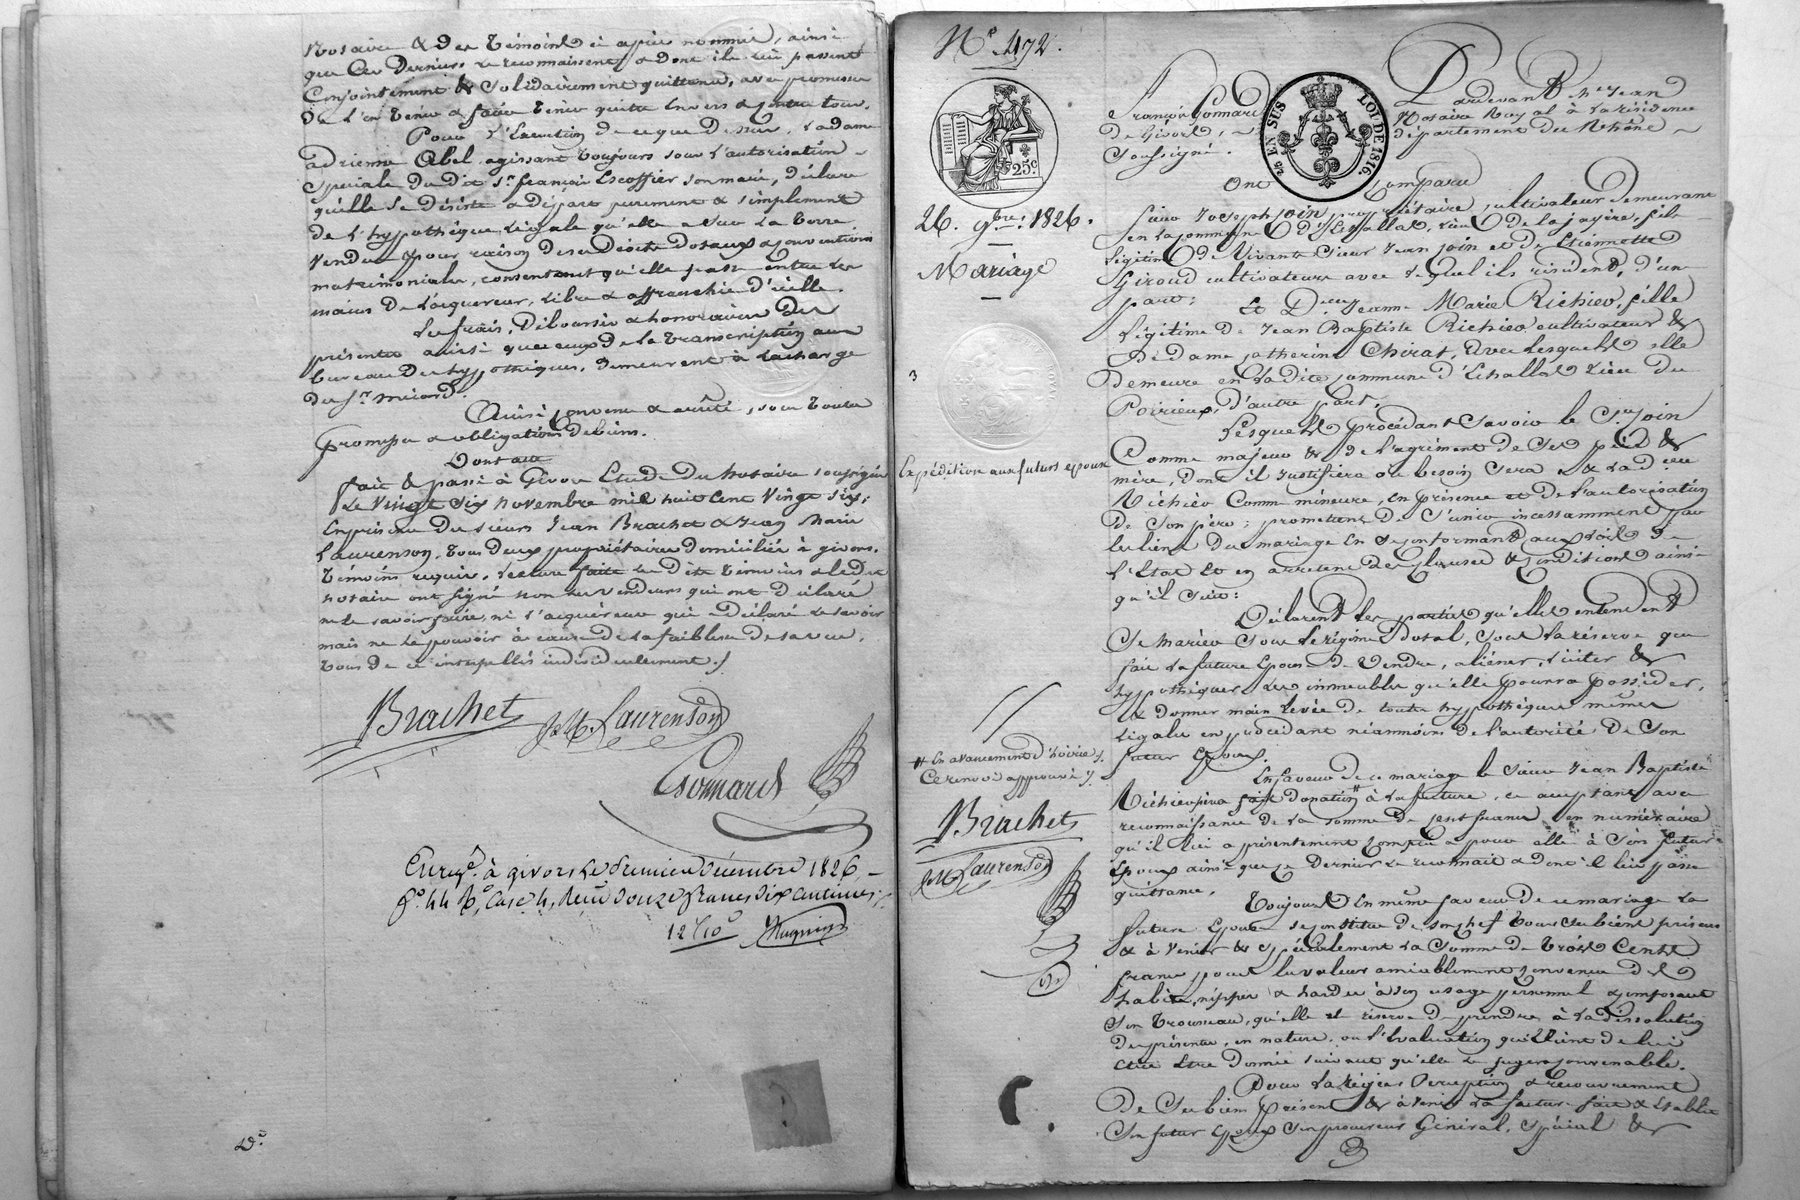 Notaire & des témoins ci après nommés, ainsi
que ces derniers le reconnaissent & dont ils lui passent
Conjointement & Solidairement quittance, avec promesse
de l'en tenir & faire tenir quitte envers & contre tous.
Pour l'Exécution de ce que dessus, la dame
adrienne Abel, agissant toujours sous l'autorisation
Spéciale du dit Sr. françois Escoffier son mari, déclare
qu'elle se désiste & départ purement & simplement
de l'hypothèque légale qu'elle a sur la terre
vendue pour raison de ses droits dotaux & conventions
matrimoniales, consentant qu'elle passe entre les
mains de l'acquéreur, libre & affranchie d'icelle.
Les frais, déboursés & honoraires des
présentes ainsi que ceux de la transcription au
bureau des hypothèques, demeurent à la charge
du Sr.
Ainsi convenu & arrêté, sous toutes
promesses & obligations de biens.
Dont acte
fait & passé à Givors Etude du notaire soussigné
Le Vingt Six novembre mil huit cent vingt six;
En présence des sieurs Jean Brachet & Jean Marie
Laurenson, tous deux propriétaires domiciliés à givors.
témoins requis, lecture faite les dits témoins & le dit
notaire ont signé non les vendeurs qui ont déclaré
ne le savoir faire, ni l'acquéreur qui a déclaré le savoir
mais ne le pouvoir à cause de la faiblesse de sa vue,
tous de ce interpellés individuellement./
Brachet J.M. Laurenson
Gonnard
Enregé. à givors le premier décembre 1826,
fo. 44 Vo, Case 4, Reçu douze francs dix centimes
12 f 10 c
Do.
No. 472.
25c
26. 9bre. 1826.
Mariage
3
Expédition aux futurs époux
# En avancement d'hoirie/.
Ce renvoi approuvé/.
Brachet
JM Laurenson
Pardevant Me Jean
François Gonnard Notaire Royal à la résidence
de Givors, département du Rhône
soussigné.
EN SUS LOI DE 1816.
Ont Comparu
Sieur Joseph Join propriétaire cultivateur demeurant
en la commune d'Echallas, lieu de la jayère, fils
légitime de Vivants Sieur Jean Join et de Etiennette
Giroud cultivateurs avec lesquels ils résident, d'une
part;
Et Delle Jeanne Marie Richier, fille
légitime de Jean Baptiste Richier cultivateur &
de dame Catherine Chirat, avec lesquels elle
demeure en la dite commune d'Echallas lieu du
Poirieux, d'autre part.
Lesquels procédant savoir le Sr. Join
Comme majeur & de l'agrément de ses père &
mère, dont il justifiera où besoin sera & la Delle
Richier Comme mineure, en présence et de l'autorisation
de Son père; promettent de S'unir incessamment par
les liens du mariage en se conformant aux lois de
l'Etat et en arrêtent les Clauses & Conditions ainsi
qu'il suit:
Déclarent les parties qu'elles entendent
Se marier sous le régime dotal, sous la réserve que
fait la future Epouse de Vendre, aliéner, liciter &
hypothéquer les immeubles qu'elle pourra posséder,
& donner main levée de toutes hypothèques mêmes
légales en procédant néanmoins de l'autorité de Son
futur Epoux.
En faveur de ce mariage le Sieur Jean Baptiste
Richier père fait donation # à la future, ce acceptant avec
reconnaissance de la somme de Cent francs en numéraire
qu'il lui a présentement comptée & pour elle à Son futur
époux ainsi que ce dernier le reconnaît & dont il lui passe
quittance.
Toujours en même faveur de ce mariage la
future Epouse se constitue de son chef tous ses biens présens
& à venir & Spécialement la Somme de Trois Cents
francs pour la valeur amiablement convenue des
habits, nippes & hardes à son usage personnel & composant
Son trousseau, qu'elle se réserve de prendre à la dissolution
des présentes, en nature, ou l'Evaluation qui vient de lui
être donnée suivant qu'elle le jugera convenable.
Pour la régie, Perception & recouvrement
de Ses biens présens & à venir la future fait & établit
Son futur époux son procureur Général, Spécial &